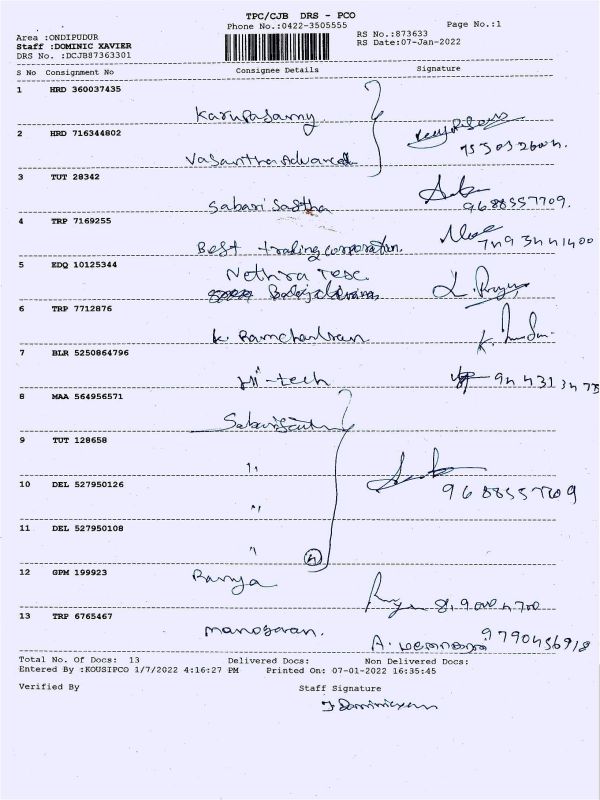 TPC/CJB DRS - PCO
Phone No.:0422-3505555
Page No.:1
Area :ONDIPUDUR
Staff :DOMINIC XAVIER
DRS No. :DCJB87363301
RS No.:873633
RS Date:07-Jan-2022
S No Consignment No Consignee Details Signature
1 HRD 360037435
Karupasamy
2 HRD 716344802
3 TUT 28342
Sabari Sastha
9688557709.
4 TRP 7169255
Best trading corporation.
7493441400
5 EDQ 10125344
Nethra Tesc.
6 TRP 7712876
K. Ramchandran
7 BLR 5250864796
Hi-tech
8 MAA 564956571
9 TUT 128658
"
10 DEL 527950126
"
9688557709
11 DEL 527950108
"
4
12 GPM 199923
Ramya
13 TRP 6765467
manogaran.
9790456918
Total No. Of Docs: 13 Delivered Docs: Non Delivered Docs:
Entered By :KOUSIPCO 1/7/2022 4:16:27 PM Printed On: 07-01-2022 16:35:45
Verified By Staff Signature